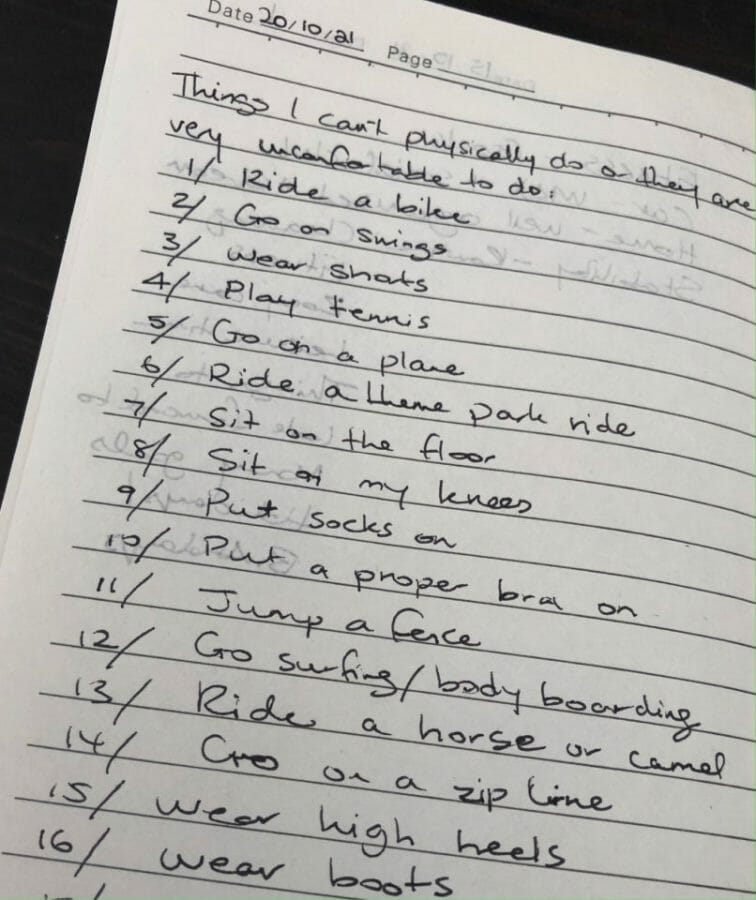 Date 20/10/21 Page
Things I can't physically do or they are
very uncomfortable to do:
1/ Ride a bike
2/ Go on swings
3/ wear shorts
4/ Play tennis
5/ Go on a plane
6/ Ride a theme park ride
7/ Sit on the floor
8/ Sit on my knees
9/ Put socks on
10/ Put a proper bra on
11/ Jump a fence
12/ Go surfing/body boarding
13/ Ride a horse or camel
14/ Go on a zip line
15/ wear high heels
16/ wear boots